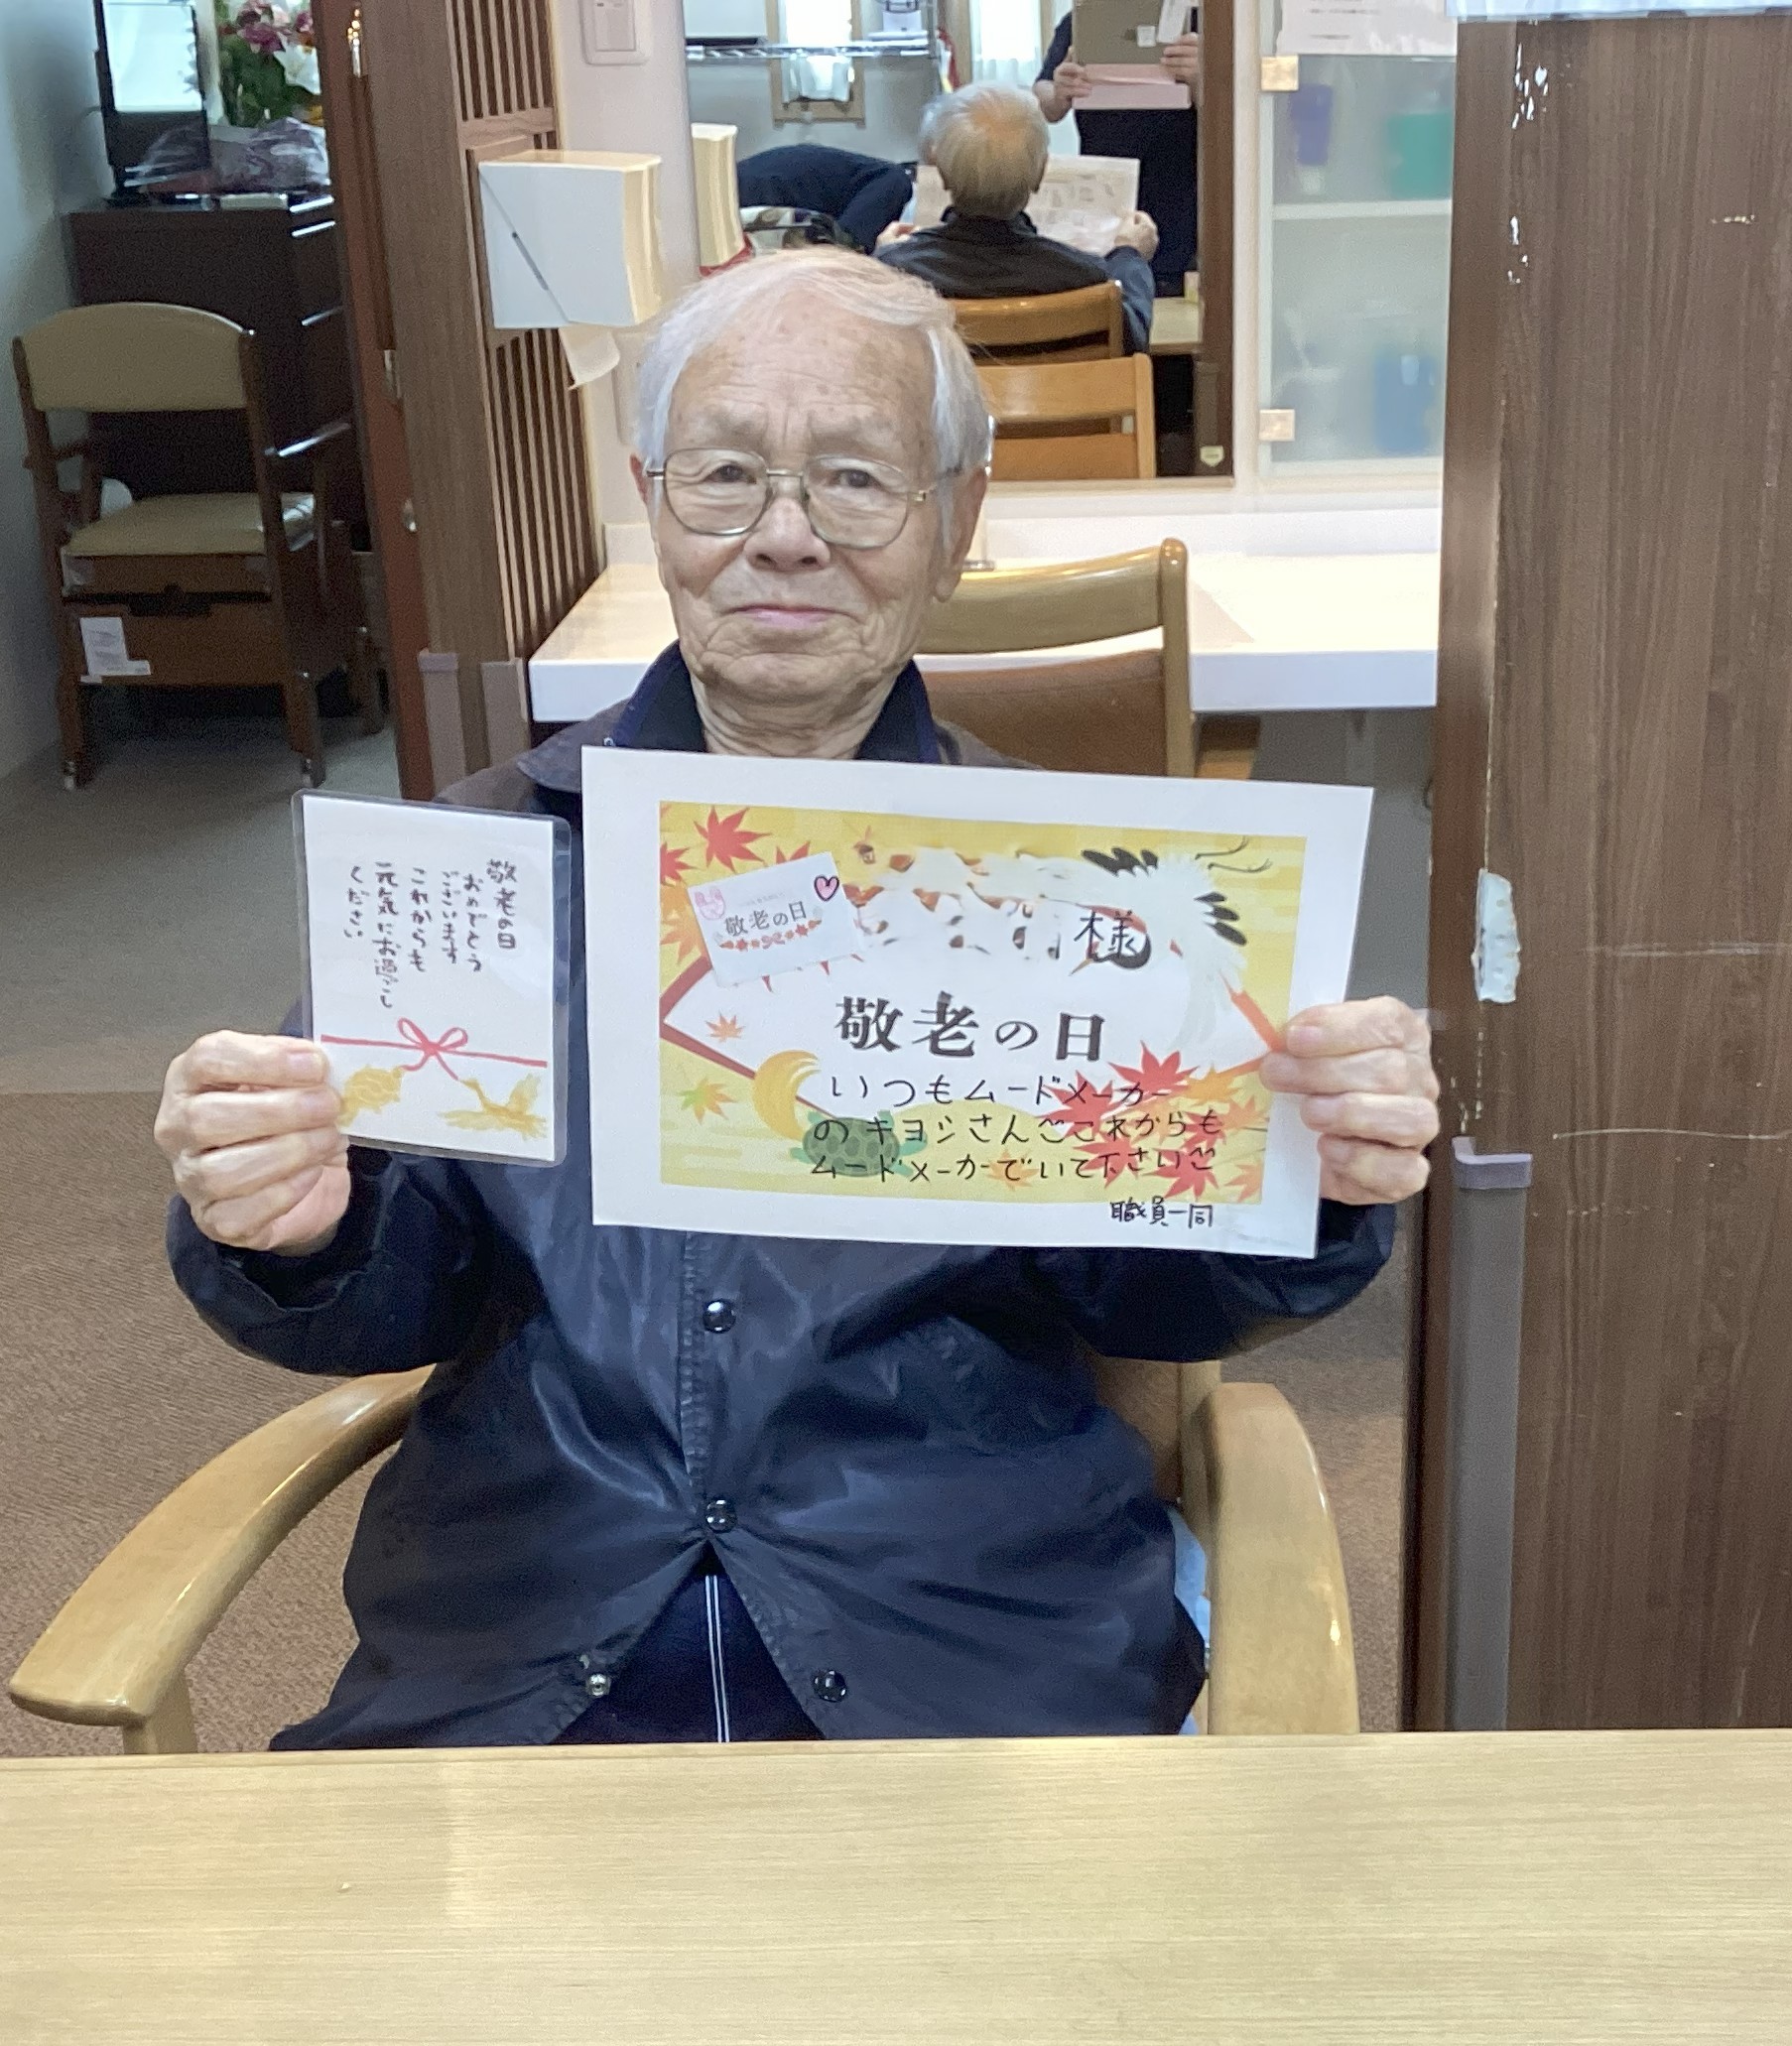 敬老の日
おめでとう
ございます
これからも
元気にお過ごし
ください
敬老の日
様
敬老の日
いつもムードメーカー
のキヨシさん これからも
ムードメーカーでいて下さい
職員一同